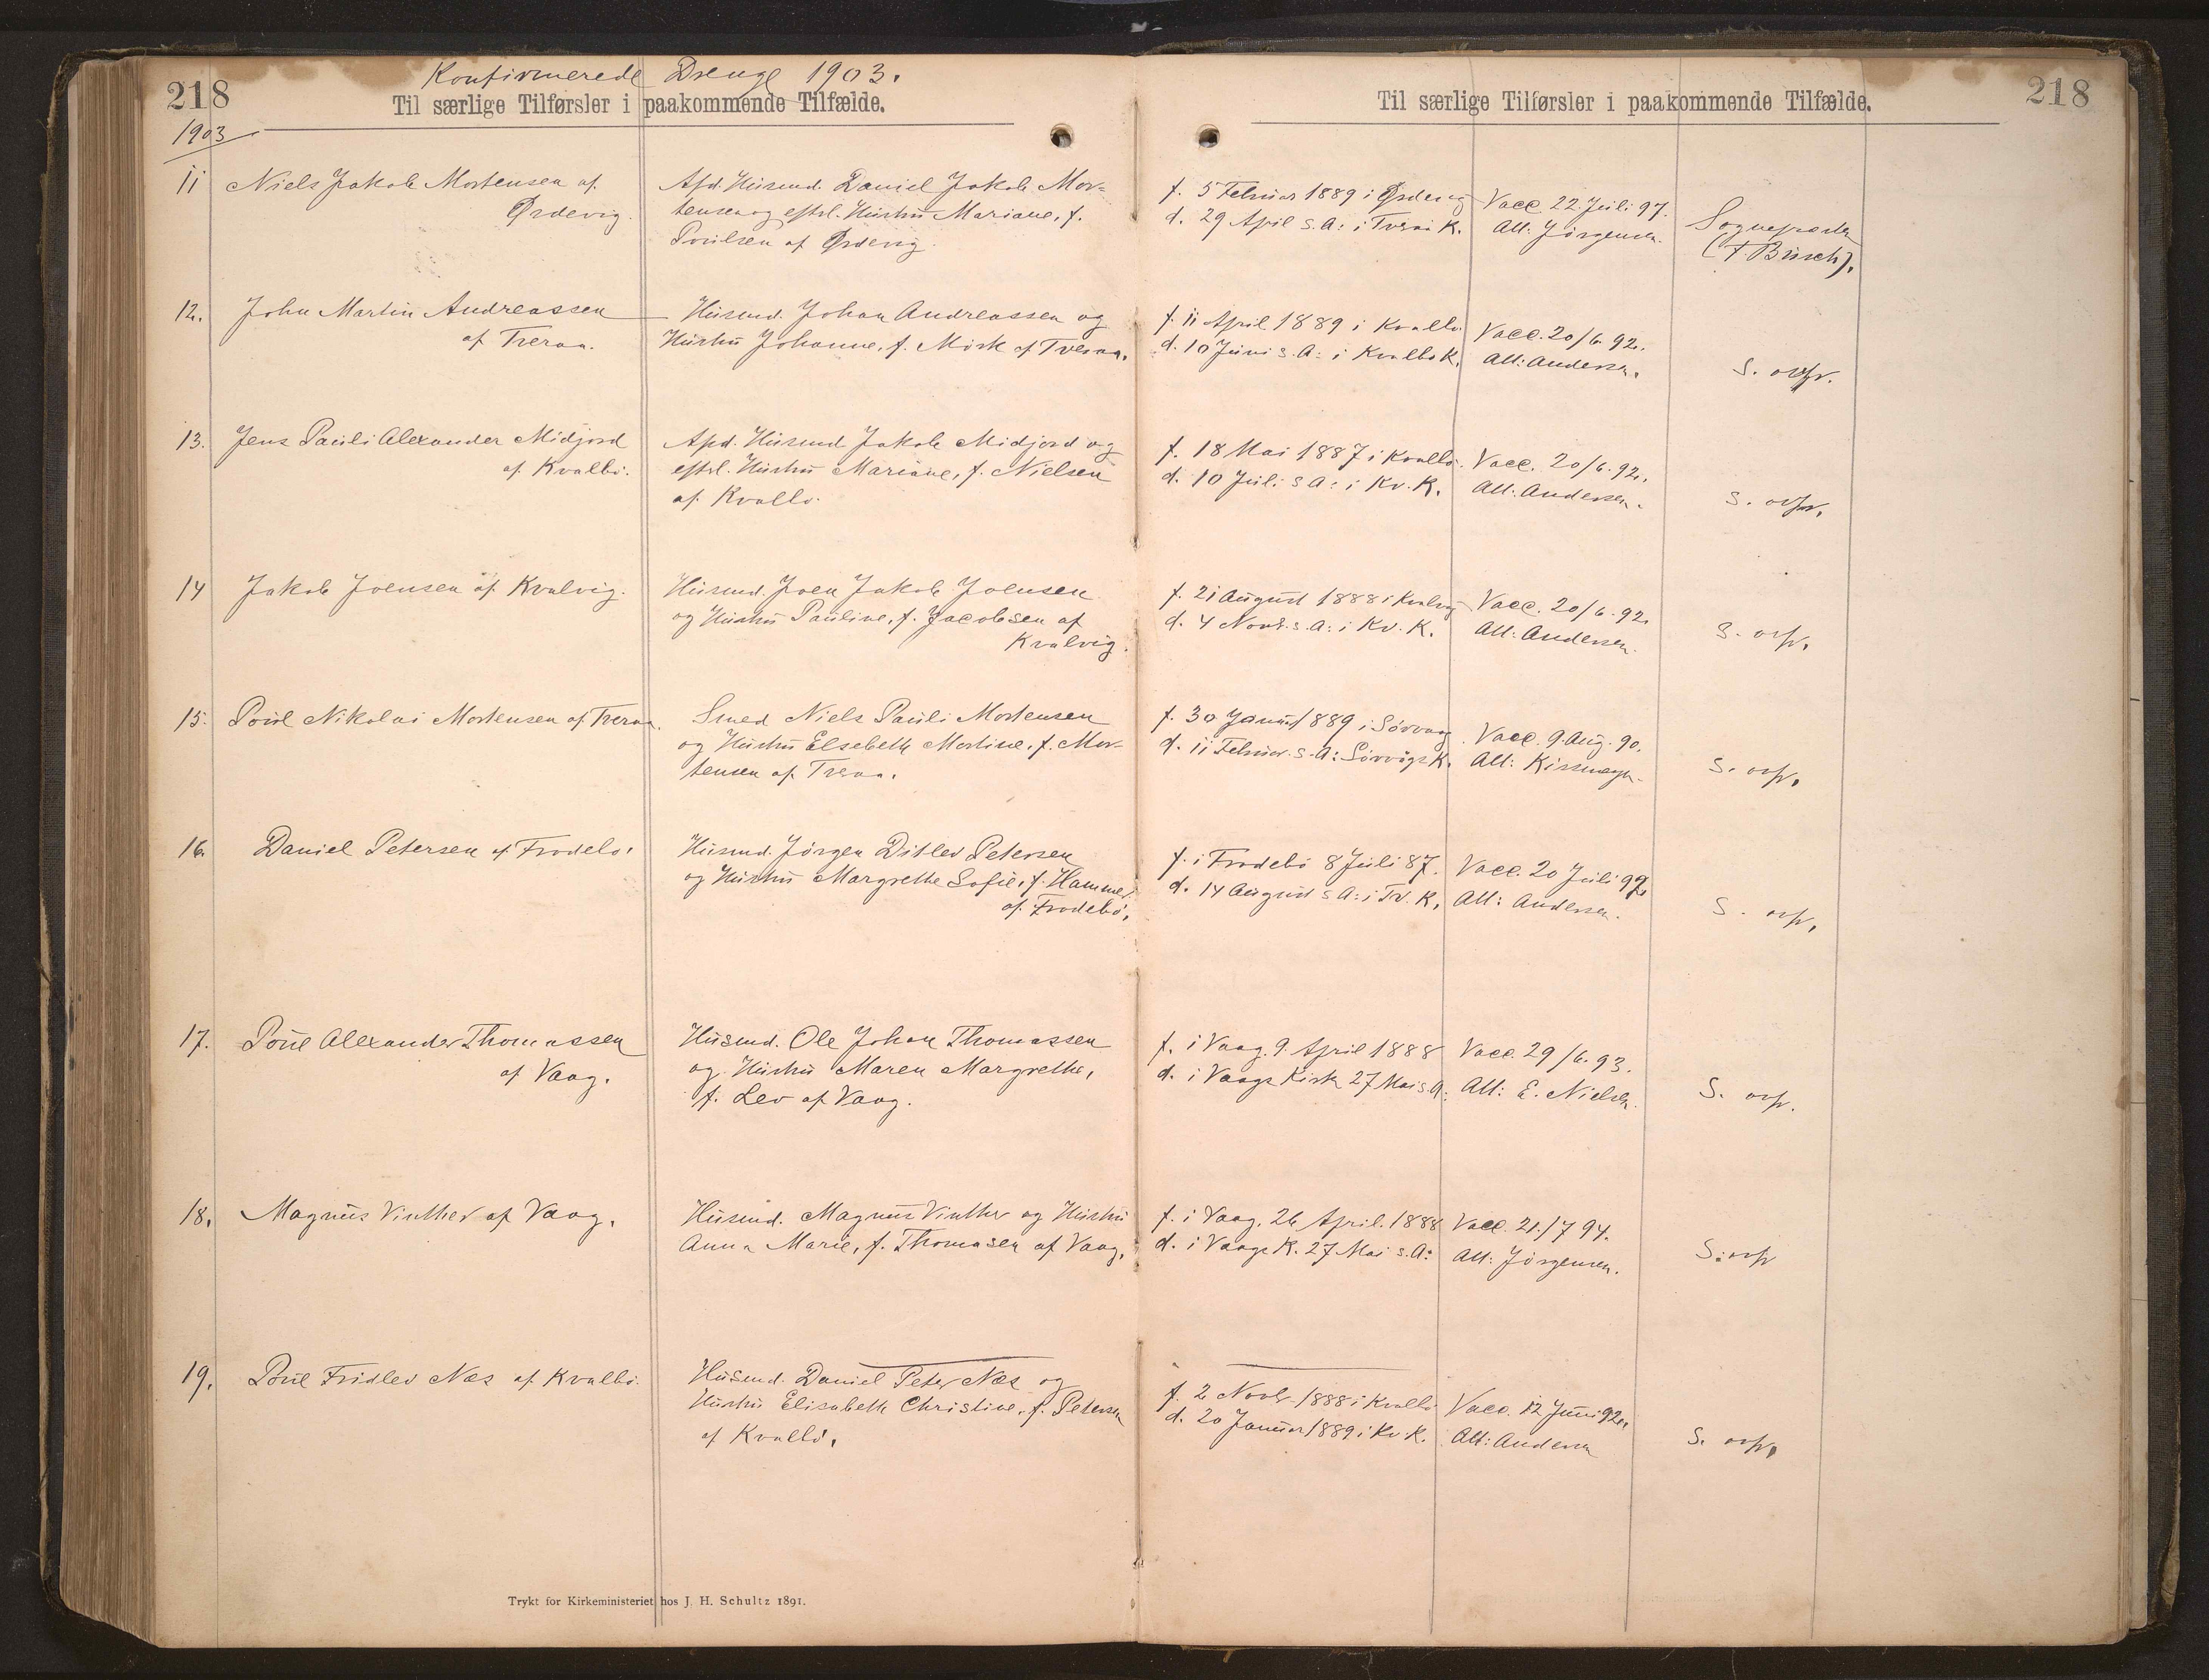 Konfirmerede Drenge 1903.
218
Til særlige Tilførsler i paakommende Tilfælde.
1903
11 Niels Jakob Mortensen af
Ørdevig.
Afd. Husmd. Daniel Jakob Mor-
tensen og eftrl. Hustru Mariane, f.
Poulsen af Ørdevig.
12. John Martin Andreassen
af Tveraa.
Husmd. Johan Andreassen og
Hustru Johanne, f. Mørk af Tveraa.
13. Jens Pauli Alexander Midjord
af Kvalbö.
Afd. Husmd Jakob Midjord og
eftrl. Hustru Mariane, f. Nielsen
af Kvalbö.
14 Jakob Joensen af Kvalvig.
Husmd. Joen Jakob Joensen
og Hustru Pauline, f. Jacobsen af
Kvalvig.
15. Poul Nikolai Mortensen af Tveraa.
Smed Niels Pauli Mortensen
og Hustru Elsebeth Mortine, f. Mor-
tensen af Tveraa.
16. Daniel Petersen af Frodebö.
Husmd. Jörgen Ditlev Petersen
og Hustru Margrethe Sofie, f. Hammer
af Frodebö.
17. Poul Alexander Thomassen
af Vaag.
Husmd. Ole Johan Thomassen
og Hustru Maren Margrethe,
f. Lev af Vaag.
18. Magnus Vinther af Vaag.
Husmd. Magnus Vinther og Hustru
Anna Marie, f. Thomasen af Vaag.
19. Poul Fridlev Næs af Kvalbö.
Husmd. Daniel Peter Næs og
Hustru Elisabeth Christine, f. Petersen
af Kvalbö.
Trykt for Kirkeministeriet hos J. H. Schultz 1891.
Til særlige Tilførsler i paakommende Tilfælde.
218
f. 5 Februar 1889 i Ørdevig
d. 29 April s. A: i Tveraa K.
Vacc 22. Juli 97.
Att: Jörgensen.
Sognepræsten
(F. Busch).
f. 11 April 1889 i Kvalbö.
d. 10 Juni s. A: i Kvalbö K.
Vacc. 20/6 92.
Att: Andersen.
S. ovfr.
f. 18 Mai 1887 i Kvalbö.
d. 10 Juli s A: i Kv. K.
Vacc. 20/6. 92.
Att: Andersen.
S. ovfr.
f. 21 August 1888 i Kvalvig
d. 4 Novb. s. A: i Kv. K.
Vacc. 20/6. 92.
Att: Andersen.
S. ovfr.
f. 30 Januar 1889 i Sörvaag.
d. 11 Februar s. A: Sörvågs K.
Vacc. 9. Aug. 90.
Att:
S. ovfr.
f. i Frodebö 8 Juli 87.
d. 14 August s A: i Tv. K.
Vacc. 20 Juli 92
Att: Andersen.
S. ovfr.
f. i Vaag. 9. April 1888
d. i Vaags Kirke 27 Mai s. A:
Vacc. 29/6. 93.
Att: E. Nielsen.
S. ovfr.
f. i Vaag. 26 April. 1888
d. i Vaags K. 27 Mai s. A:
Vacc. 21./7 94.
Att: Jörgensen.
S: ovfr
f. 2 Novb. 1888 i Kvalbö
d. 20 Januar 1889 i Kv. K.
Vacc. 12 Juni 92.
Att: Andersen
S. ovfr.